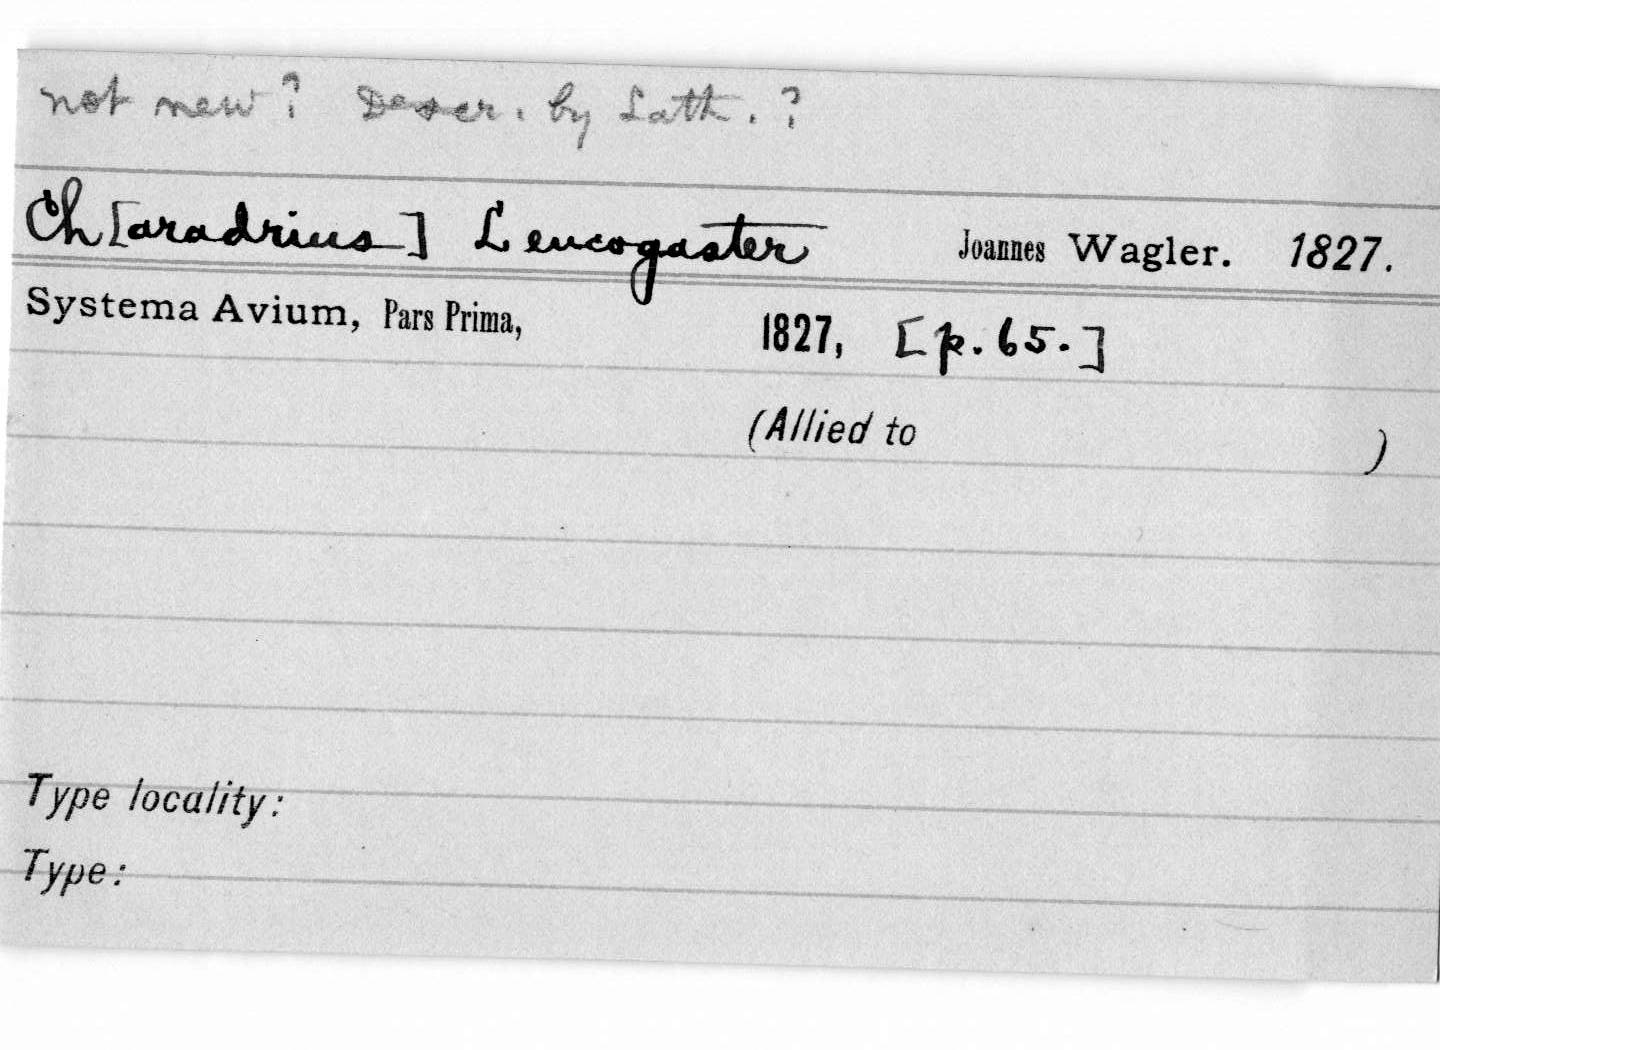 not new? Descr. by Lath.?
Ch[aradrius] Leucogaster Joannes Wagler. 1827.
Systema Avium, Pars Prima, 1827, [p. 65.]
(Allied to )
Type locality:
Type: